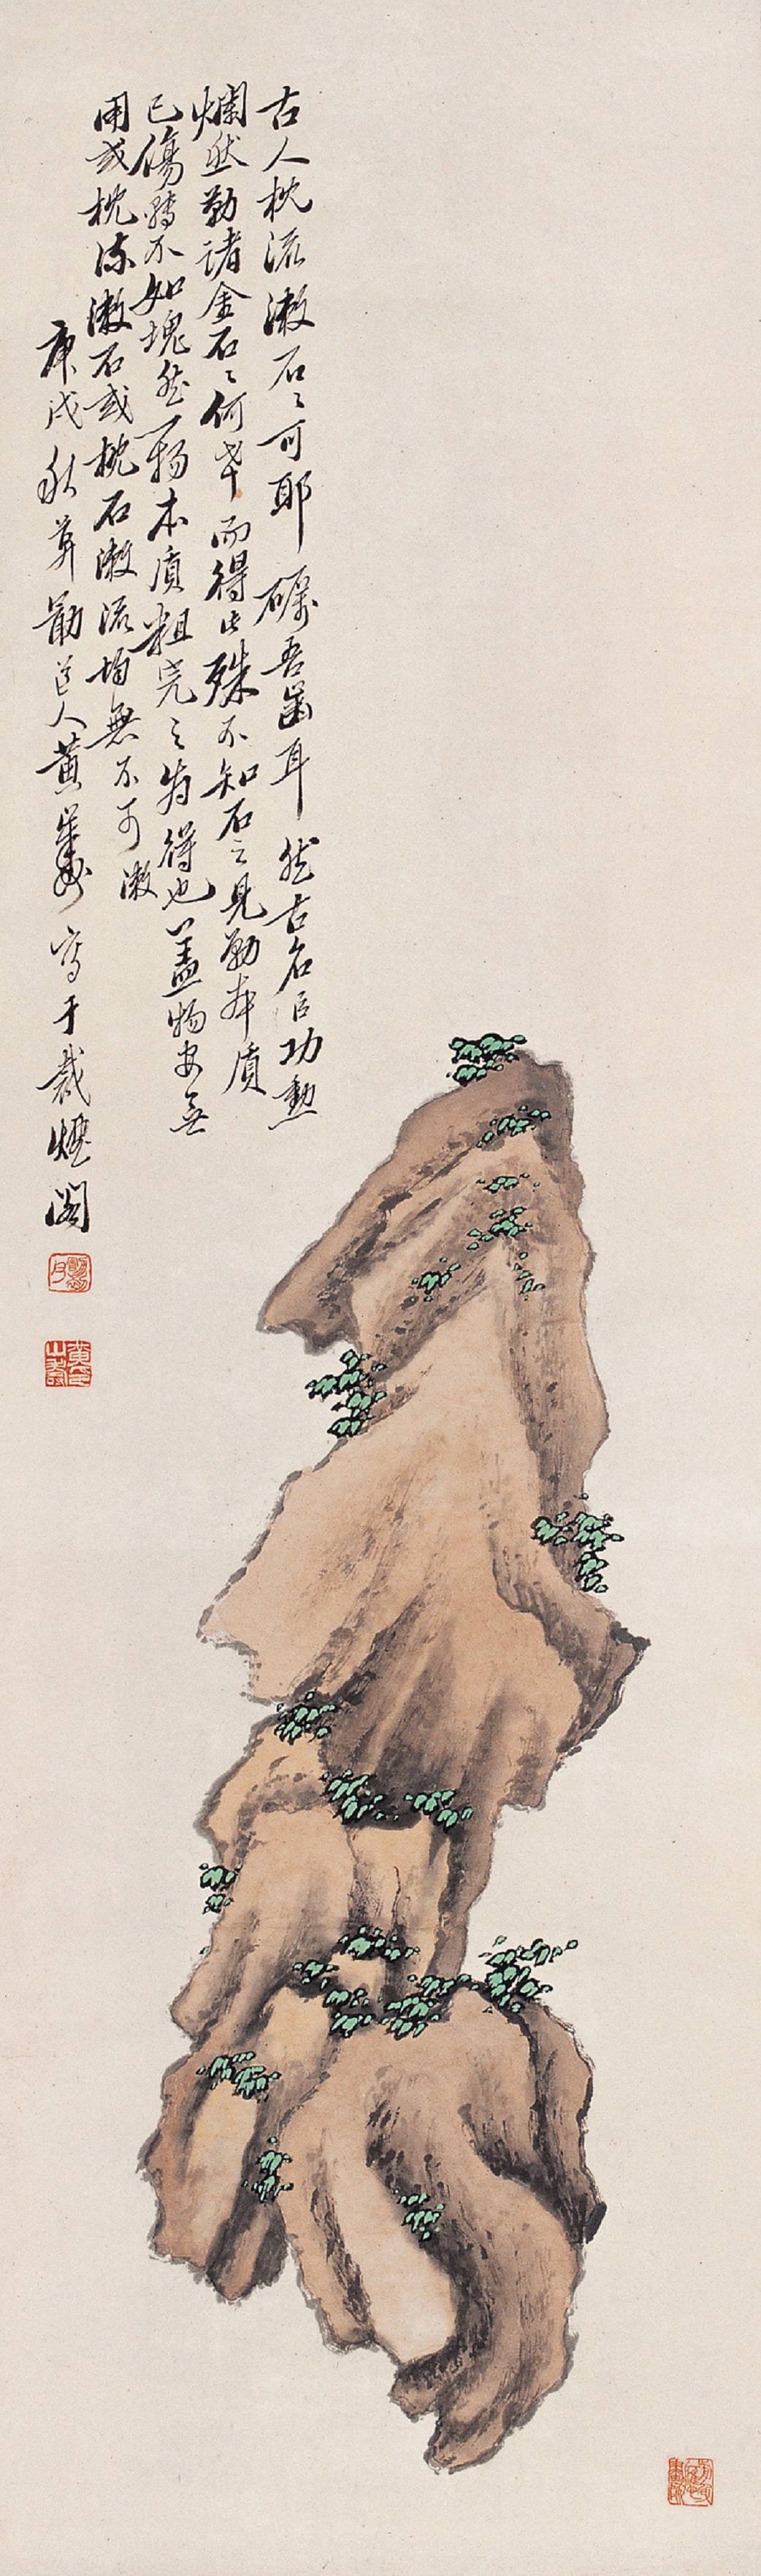 古人枕流漱石〻可耶礪吾齒耳然古名臣功勳
爛然勒諸金石〻何幸而得此殊不知石之見勒本質
已傷轉不如塊然一物本質粗完之為得也蓋物安無
用或枕流漱石或枕石漱流均無不可 漱
庚戌秋葬勖道人黃山壽寫于裁煙閣
黃山壽